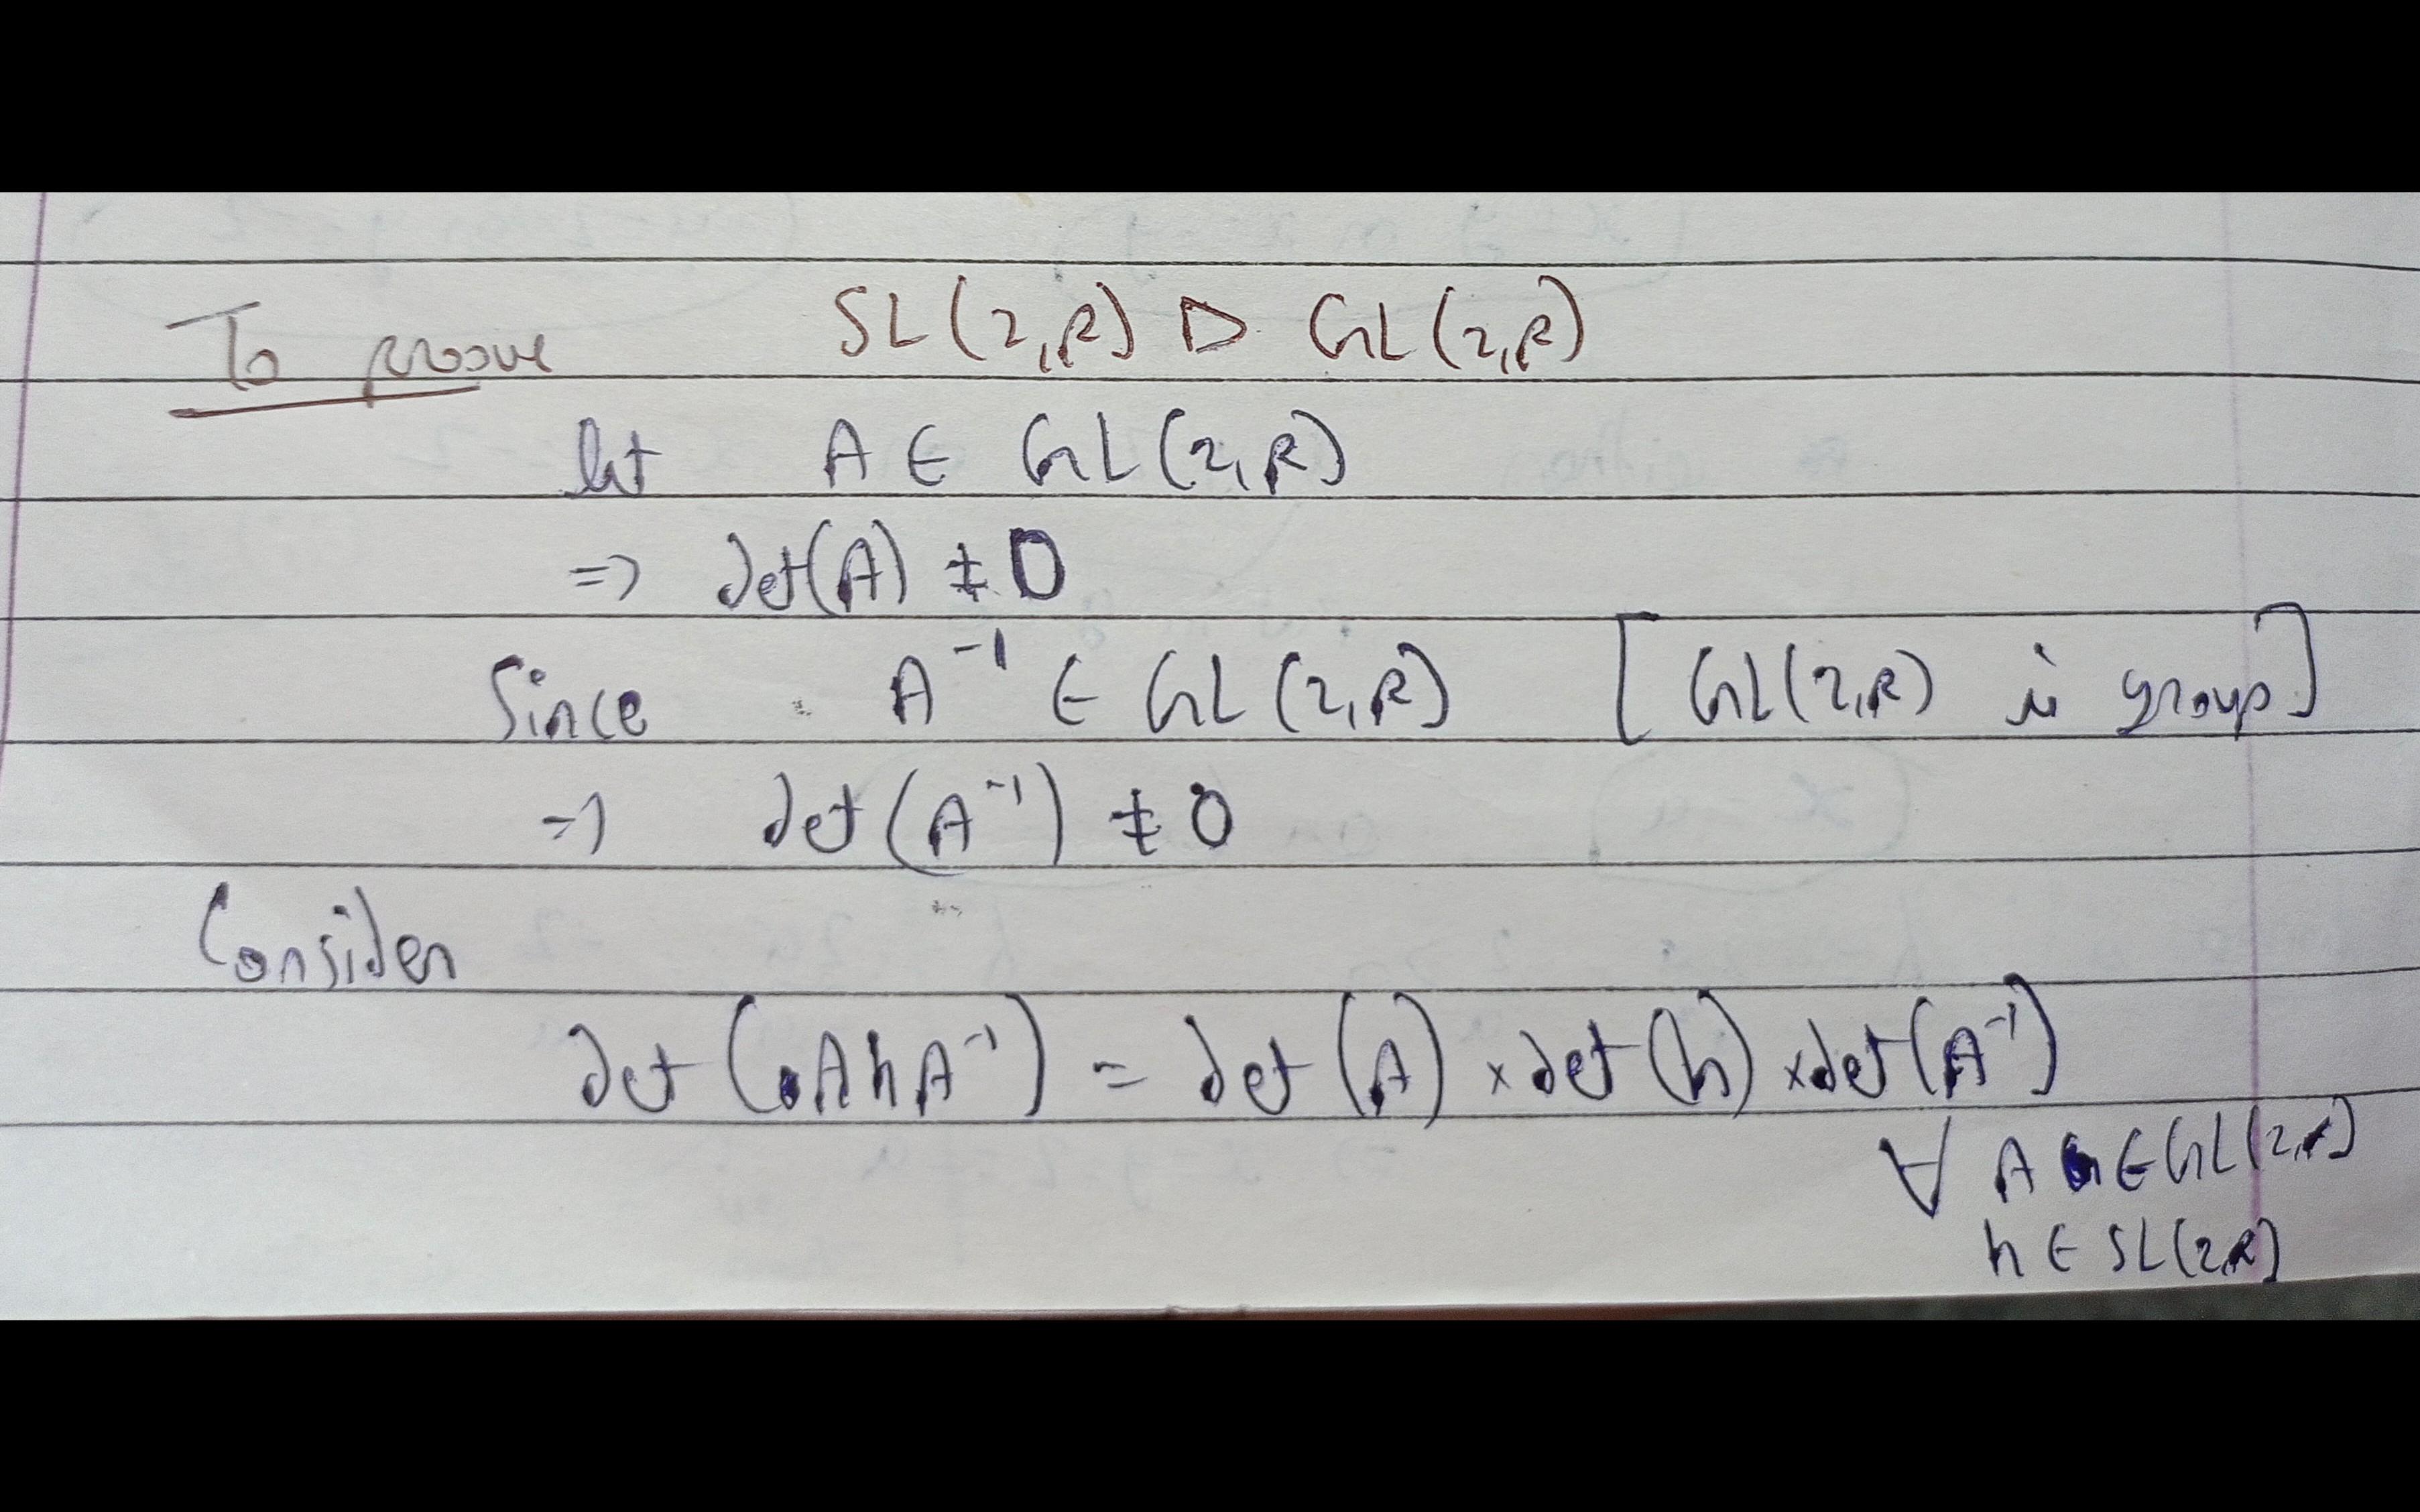 To proove SL(2,R) ▷ GL(2,R)
let A ∈ GL(2,R)
=> det(A) ≠ 0
Since A⁻¹ ∈ GL(2,R) [GL(2,R) is group]
=> det(A⁻¹) ≠ 0
Consider
det(AhA⁻¹) = det(A) × det(h) × det(A⁻¹)
∀ A ∈ GL(2,R)
h ∈ SL(2,R)